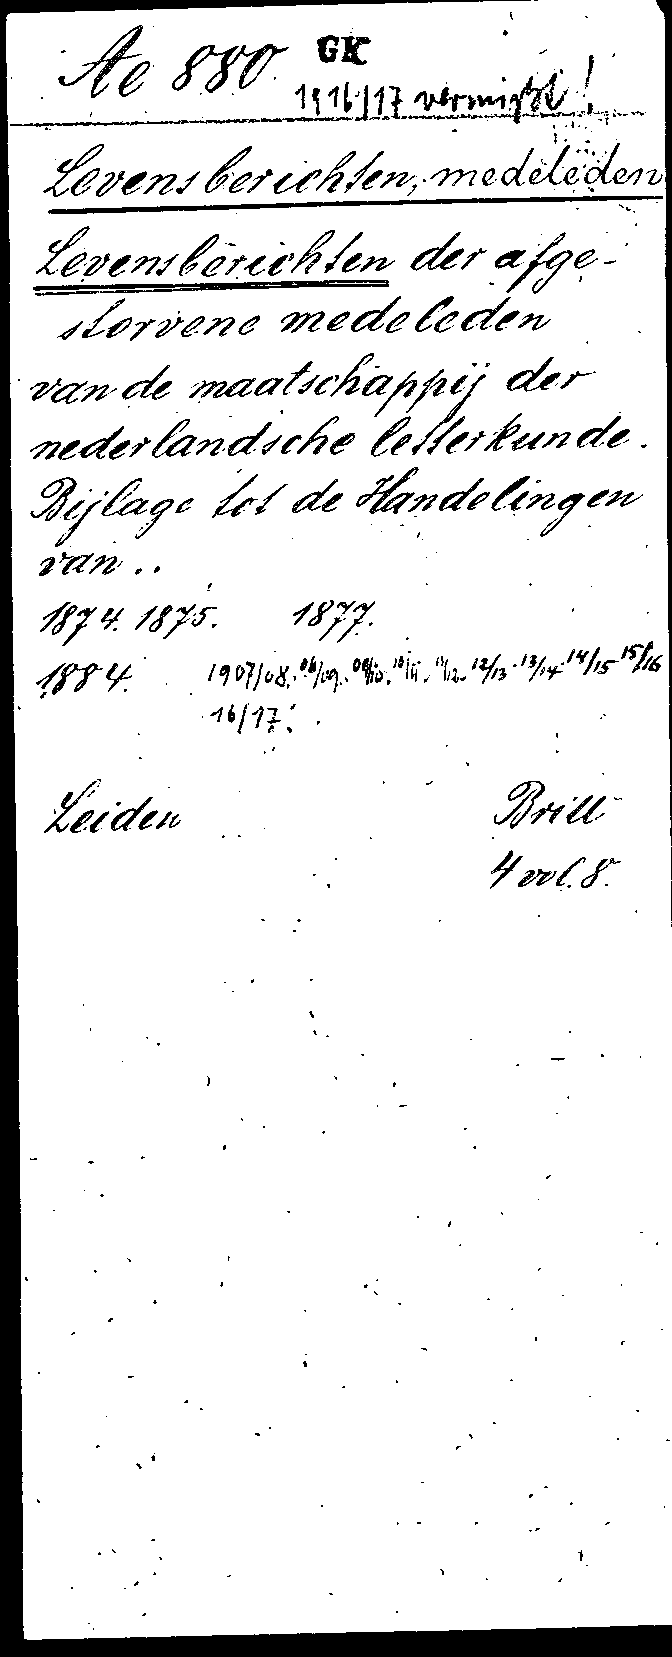 Ae 880 GK
1916/17 vermißt!
Levensberichten, medeleden
Levensberichten der afge-
storvene medeleden
van de maatschappij der
nederlandsche letterkunde.
Bijlage tot de Handelingen
van ..
1874. 1875. 1877.
1884. 1907/08. 08/09. 09/10. 10/11. 11/12. 12/13. 13/14 14/15 15/16
16/17.
Leiden Brill
4 vol. 8.